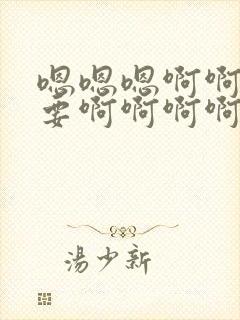 嗯嗯嗯啊啊
要啊啊啊啊
湯少新